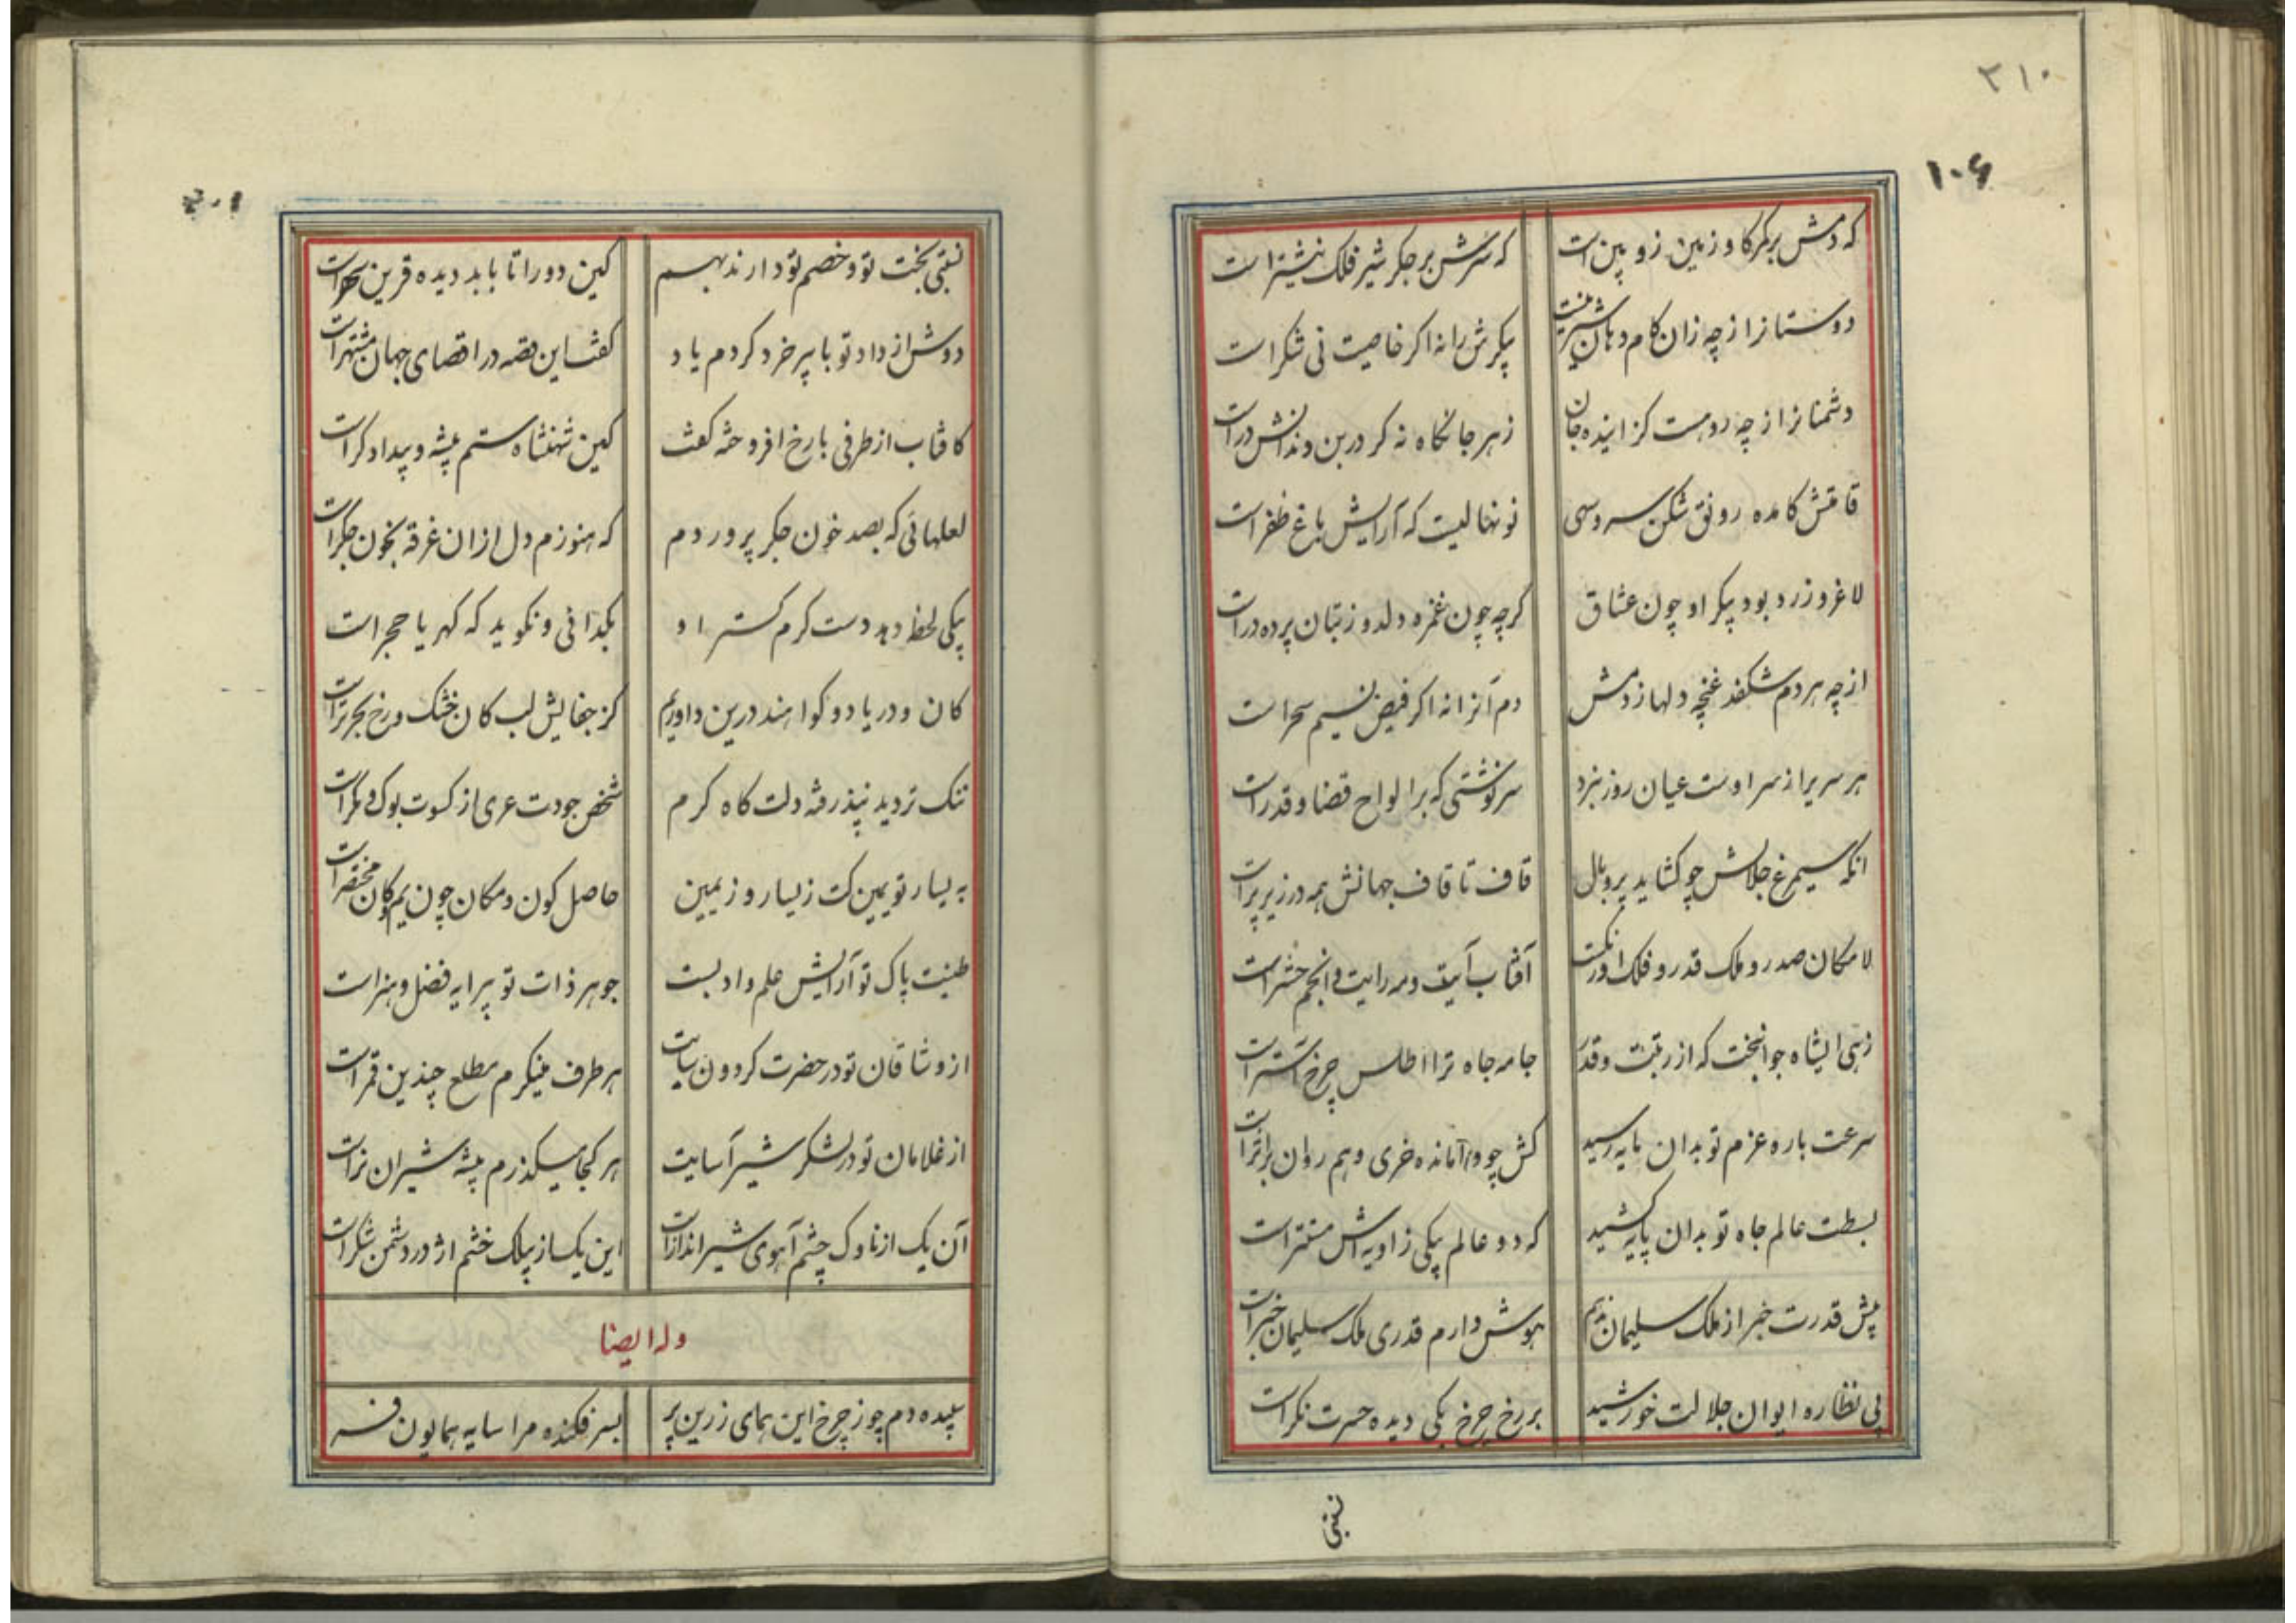 ۳۱۰
۱۰۶
که دمش بر کمر گاو زمین زوبین است که سرش بر جگر شیر فلک نیشتر است
دوستانرا ز چه زان کام و دهان شیرینست پیکرش را نه اگر خاصیت نی شکر است
دشمنانرا ز چه روهست گزاینده جان زهر جانکاه نه گر در بن دندانش در است
قامتش کامده رونق شکن سرو سهی نونهالیست که آرایش باغ ظفر است
لاغر و زرد بود پیکر او چون عشاق گرچه چون غمزه دلدوز بتان پرده در است
از چه هر دم شکفد غنچه دلها ز دمش دم آنرا نه اگر فیض نسیم سحر است
هر سریرا ز سر اوست عیان روز نبرد سرنوشتی که بر الواح قضا و قدر است
انکه سیمرغ جلالش چو کشاید پر و بال قاف تا قاف جهانش همه در زیر پر است
لامکان صدر و ملک قدر و فلک اورنکست آفتاب آیت و مه رایت و انجم حشر است
زهی ایشاه جوانبخت که از رتبت و قدر جامه جاه ترا اطلس چرخ آستر است
سرعت باره عزم تو بدان مایه رسید کش چو وامانده خری وهم روان بر اثر است
بسطت عالم جاه تو بدان پایه کشید که دو عالم بیکی زاویه اش مستتر است
پیش قدرت خبر از ملک سلیمان ندهم هوش دارم قدری ملک سلیمان خبر است
پی نظاره ایوان جلالت خورشید بر رخ چرخ یکی دیده حسرت نگر است
نسبتی
نسبتی بخت تو و خصم تو دارند بهم کین دو را تا بابد دیده قرین سهر است
دوش از داد تو با پیر خرد کردم یاد گفت این قصه در اقصای جهان مشتهر است
کافتاب از طرفی با رخ افروخته گفت کین شهنشاه ستم پیشه و بیدادگر است
لعلهائی که بصد خون جگر پروردم که هنوزم دل از ان غرقه بخون جگر است
بیکی لحظه دهد دست کرم گستر او بگدائی و نگوید که گهر یا حجر است
کان و دریا دو گواهند درین داوریم کز جفایش لب کان خشک و رخ بحر تر است
ننک تردید نپذرفته دلت گاه کرم شخص جودت عری از کسوت بوک و مگر است
به یسار تو یمین کت ز یسار و ز یمین حاصل کون و مکان چون یم و کان مختصر است
طینت پاک تو آرایش علم و ادبست جوهر ذات تو پیرایه فضل و هنر است
از وشاقان تو در حضرت گردون سایت هر طرف مینگرم مطلع چندین قمر است
از غلامان تو در لشکر شیر آسایت هر کجا میگذرم بیشه شیران نر است
آن یک از ناوک چشم آهوی شیر انداز است این یک از بیلک خشم اژدر دشمن شکر است
وله ایضا
سپیده دم چو ز چرخ این همای زرین پر بسر فکنده مرا سایه همایون فر